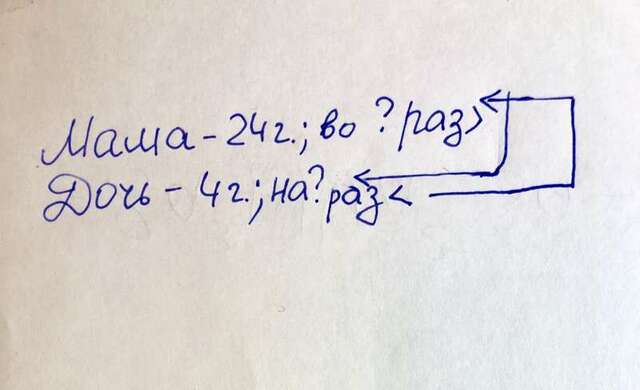 Мама - 24г.; во ? раз >
Дочь - 4г.; на? раз <